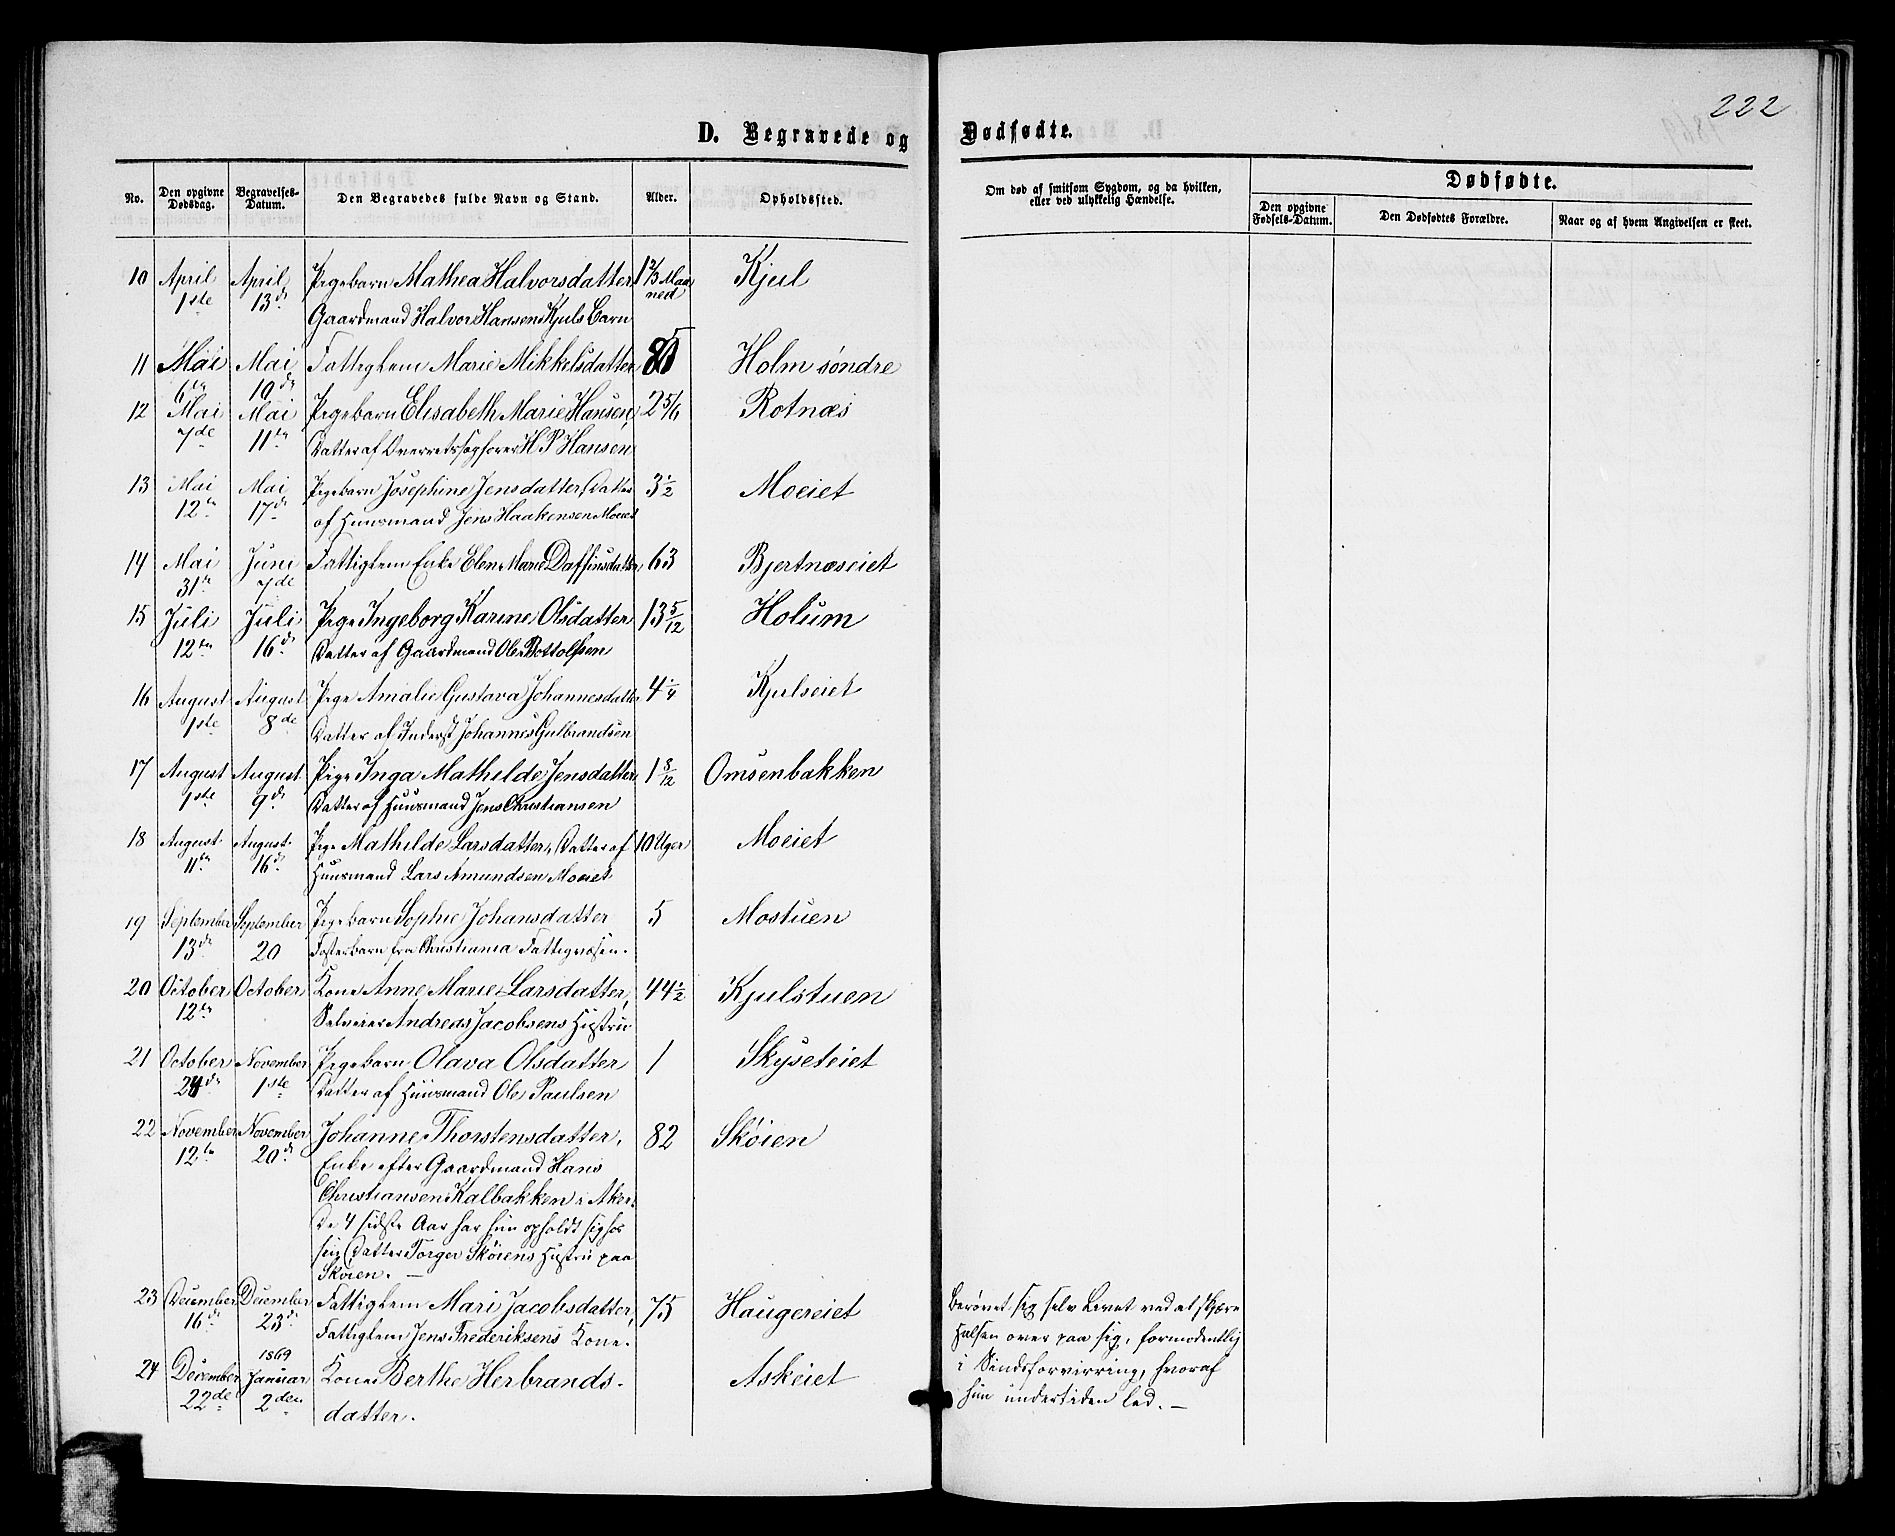 222
D. Begravede og Dødfødte.
No. Den opgivne Dødsdag. Begravelses-Datum. Den Begravedes fulde Navn og Stand. Alder. Opholdssted. Om død af smitsom Sygdom, og da hvilken, eller ved ulykkelig Hændelse. Dødfødte.
Den opgivne Fødsels-Datum. Den Dødfødtes Forældre. Naar og af hvem Angivelsen er skeet.
10 April April Pigebarn Mathea Halvorsdatter 1 2/3 Maa Kjul
1ste 13de Gaardmand Halvor Hansen Kjuls Barn ned
11 Mai Mai Fattiglem Marie Mikkelsdatter Holm søndre
6te 10de
12 Mai Mai Pigebarn Elisabeth Marie Hansen, 2 5/6 Rotnæs
7de 11te Datter af Overretssagfører H P Hansen
13 Mai Mai Pigebarn Josephine Jensdatter, Datter 3 1/2 Moeiet
12te 17de af Huusmand Jens Haakensen Moeiet
14 Mai Juni Fattiglem Enke Elen Marie Daffinsdatter 63 Bjertnæseiet
31te 7de
15 Juli Juli Pige Ingeborg Karine Olsdatter 13 5/12 Holum
12te 16de Datter af Gaardmand Ole Bottolfsen
16 August August Pige Amalie Gustava Johannesdatter 4 1/4 Kjulseiet
1ste 8de Datter af Inderst Johannes Gulbrandsen
17 August August Pige Inga Mathilde Jensdatter, 1 8/12 Omsenbakken
1ste 9de Datter af Huusmand Jens Christiansen
18 August August Pige Mathilde Larsdatter, Datter af 10 Uger Moeiet
11te 16de Huusmand Lars Amundsen Moeiet
19 September September Pigebarn Sophie Johansdatter 5 Mostuen
13de 20 Fosterbarn fra Christiania Fattigvæsen.
20 October October Kone Anne Marie Larsdatter, 44 1/2 Kjulstuen
12te Selveier Andreas Jacobsens Hustru
21 October November Pigebarn Olava Olsdatter 1 Skyseteiet
24de 1ste Datter af Huusmand Ole Paulsen
22 November November Johanne Thorstensdatter, 82 Skøien
12te 20de Enke efter Gaardmand Hans
Christiansen Kalbakken i Aker.
De 4 sidste Aar har hun opholdt sig hos
sin Datter Torger Skøiens Hustru paa
Skøien. —
23 December December Fattiglem Mari Jacobsdatter, 75 Haugereiet Berøvet sig selv Livet ved at skjære
16de 23de Fattiglem Jens Frederiksens Kone. Halsen over paa sig, formodentlig
1869 i Sindsforvirring, hvoraf
24 December Januar Kone Berthe Herbrands- Askeiet hun undertiden led. —
22de 2den datter.